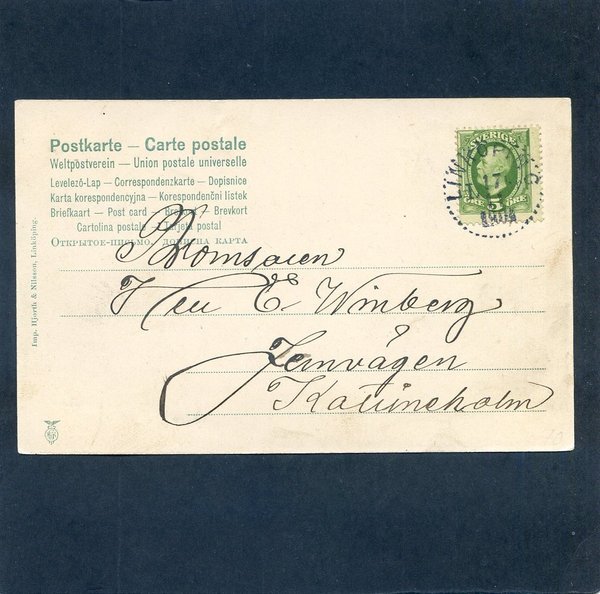 Postkarte — Carte postale
Weltpostverein — Union postale universelle
Levelező-Lap — Correspondenzkarte — Dopisnice
Karta korespondencyjna — Korespondenční lístek
Briefkaart — Post card — Brefkort — Brevkort
Cartolina postale — Tarjeta postal
Открытое-письмо, дописна карта
SVERIGE
5
ÖRE ÖRE
17
E. Winberg
Jernvägen
Katrineholm
Imp. Hjorth & Nilsson, Linköping.